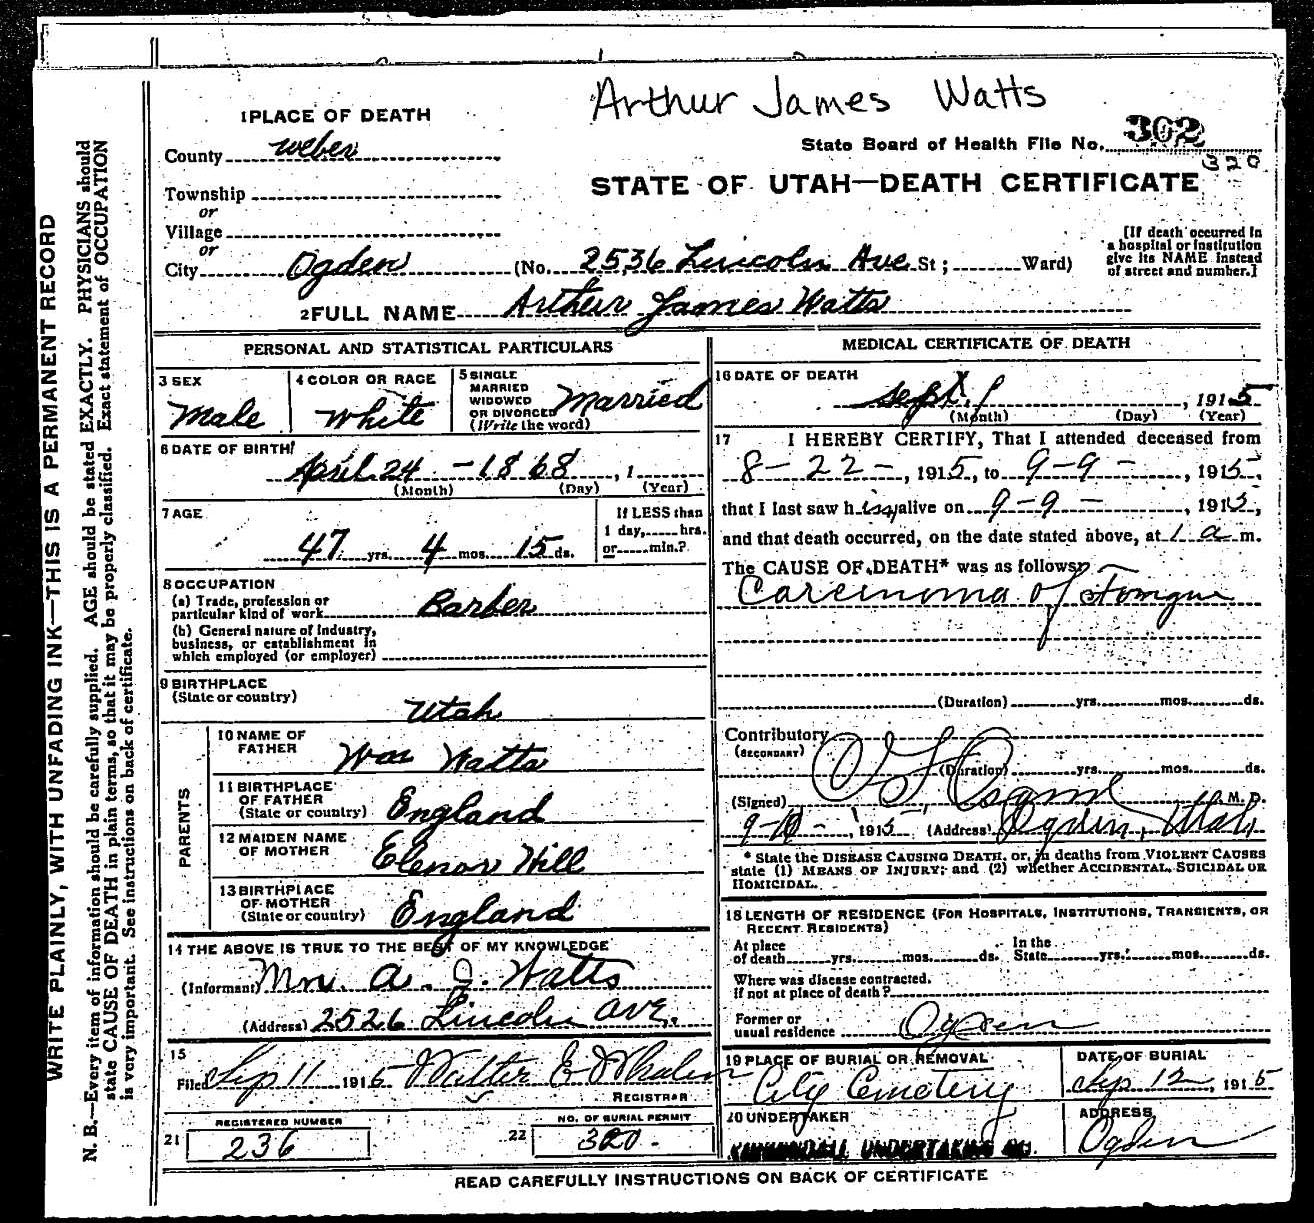 Arthur James Watts
1 PLACE OF DEATH
State Board of Health File No. 302
320
County Weber
STATE OF UTAH—DEATH CERTIFICATE
Township
or
Village
or
City Ogden (No. 2536 Lincoln Ave St; Ward)
[If death occurred in a hospital or institution give its NAME instead of street and number.]
2 FULL NAME Arthur James Watts
PERSONAL AND STATISTICAL PARTICULARS
3 SEX
Male
4 COLOR OR RACE
White
5 SINGLE
MARRIED
WIDOWED
OR DIVORCED
(Write the word)
Married
6 DATE OF BIRTH
April 24 - 1868, 1
(Month) (Day) (Year)
7 AGE
47 yrs. 4 mos. 15 ds.
If LESS than
1 day, hrs.
or min.?
8 OCCUPATION
(a) Trade, profession or
particular kind of work Barber
(b) General nature of Industry,
business, or establishment in
which employed (or employer)
9 BIRTHPLACE
(State or country)
Utah
PARENTS
10 NAME OF
FATHER
Wm Watts
11 BIRTHPLACE
OF FATHER
(State or country) England
12 MAIDEN NAME
OF MOTHER
Elenor Hill
13 BIRTHPLACE
OF MOTHER
(State or country) England
14 THE ABOVE IS TRUE TO THE BEST OF MY KNOWLEDGE
(Informant) Mrs. A. J. Watts
(Address) 2526 Lincoln Ave.
15
Filed Sep 11 1915 Walter E Whalen
REGISTRAR
REGISTERED NUMBER
21 236
NO. OF BURIAL PERMIT
22 320.
MEDICAL CERTIFICATE OF DEATH
16 DATE OF DEATH
Sept. 9, 1915
(Month) (Day) (Year)
17 I HEREBY CERTIFY, That I attended deceased from
8-22-, 1915, to 9-9-, 1915,
that I last saw h im alive on 9-9-, 1915,
and that death occurred, on the date stated above, at 1 a m.
The CAUSE OF DEATH* was as follows:
Carcinoma of Tongue
(Duration) yrs. mos. ds.
Contributory
(SECONDARY)
(Duration) yrs. mos. ds.
(Signed) M. D.
9-10-, 1915 (Address) Ogden, Utah
* State the DISEASE CAUSING DEATH, or, in deaths from VIOLENT CAUSES
state (1) MEANS OF INJURY; and (2) whether ACCIDENTAL, SUICIDAL OR
HOMICIDAL.
18 LENGTH OF RESIDENCE (FOR HOSPITALS, INSTITUTIONS, TRANSIENTS, OR
RECENT RESIDENTS)
At place
of death yrs. mos. ds.
In the
State yrs. mos. ds.
Where was disease contracted.
if not at place of death?
Former or
usual residence Ogden
19 PLACE OF BURIAL OR REMOVAL
City Cemetery
DATE OF BURIAL
Sep 12, 1915
20 UNDERTAKER
UNDERTAKING CO.
ADDRESS
Ogden
READ CAREFULLY INSTRUCTIONS ON BACK OF CERTIFICATE
WRITE PLAINLY, WITH UNFADING INK—THIS IS A PERMANENT RECORD
N. B.—Every item of information should be carefully supplied. AGE should be stated EXACTLY. PHYSICIANS should
state CAUSE OF DEATH in plain terms, so that it may be properly classified. Exact statement of OCCUPATION
is very important. See instructions on back of certificate.